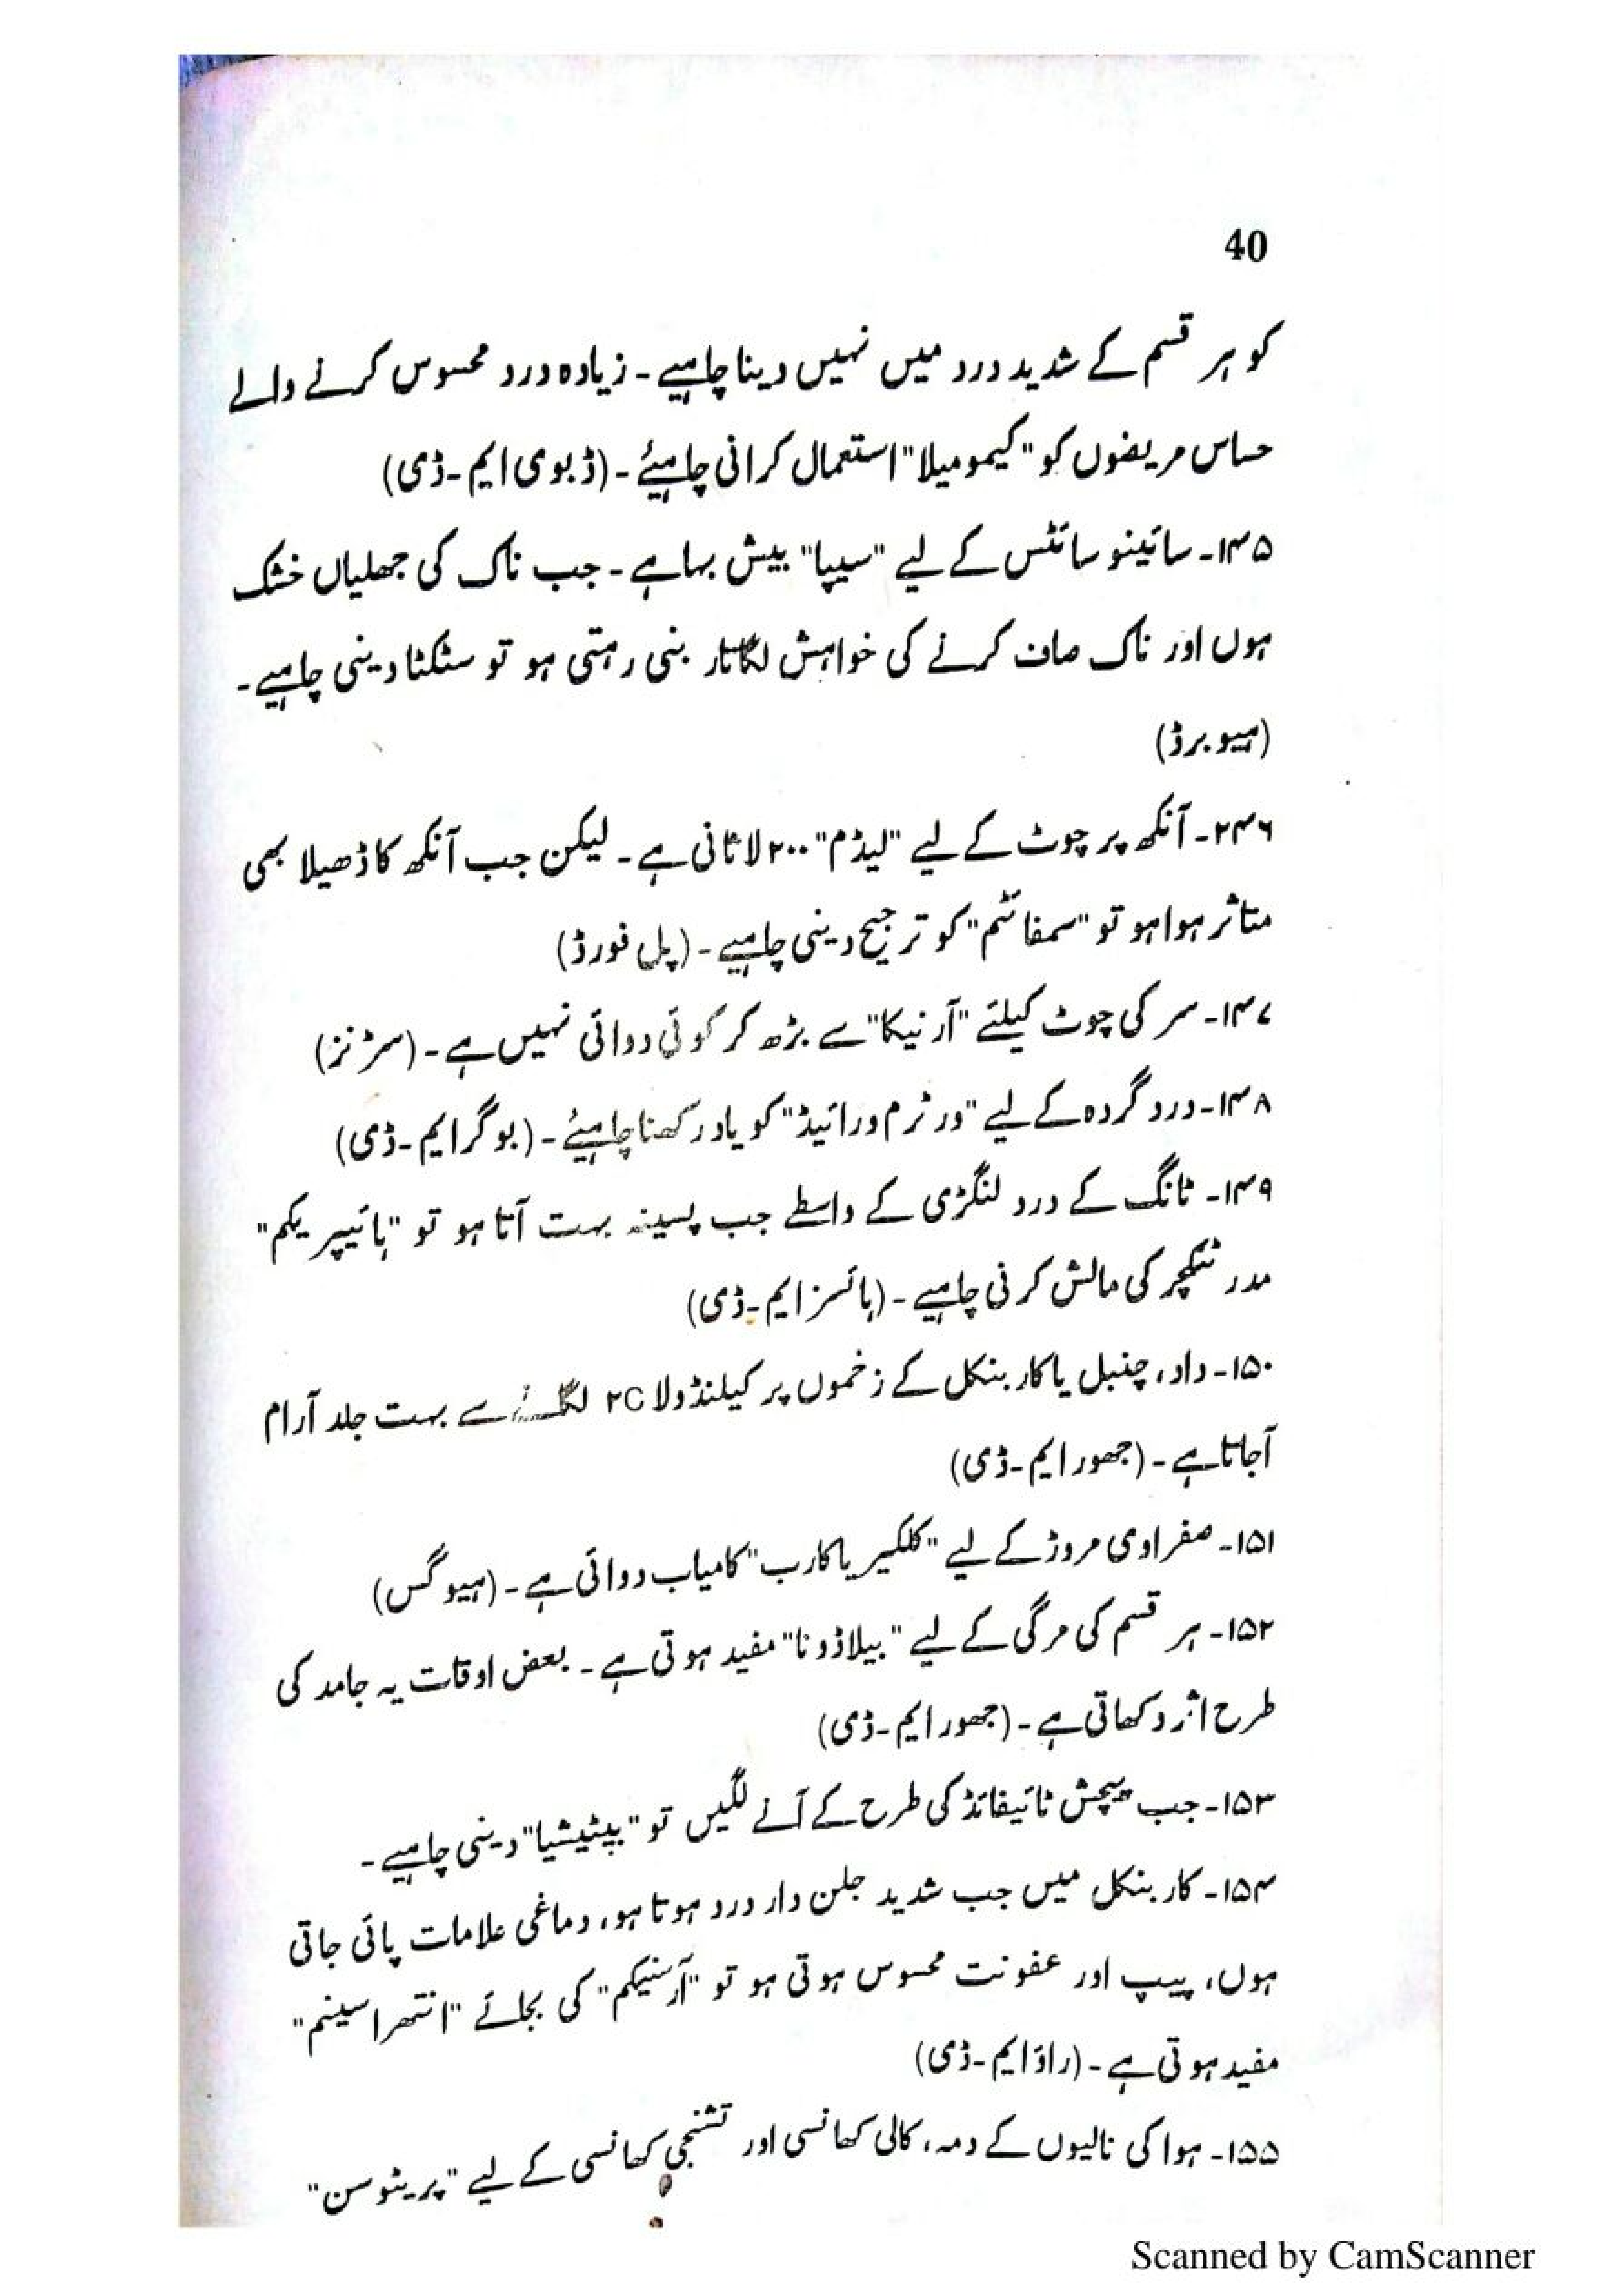 40
کو ہر قسم کے شدید درد میں نہیں دینا چاہیے۔ زیادہ درد محسوس کرنے والے
حساس مریضوں کو "کیمومیلا" استعمال کرانی چاہیئے۔ (ڈبوی ایم۔ڈی)
۱۴۵۔ سائینو سائٹس کے لیے "سیپا" بیش بہا ہے۔ جب ناک کی جھلیاں خشک
ہوں اور ناک صاف کرنے کی خواہش لگاتار بنی رہتی ہو تو سٹکٹا دینی چاہیے۔
(ہیوبرڈ)
۲۴۶۔ آنکھ پر چوٹ کے لیے "لیڈم" ۲۰۰ لاثانی ہے۔ لیکن جب آنکھ کا ڈھیلا بھی
متاثر ہوا ہو تو "سمفائٹم" کو ترجیح دینی چاہیے۔ (پل فورڈ)
۱۴۷۔ سر کی چوٹ کیلئے "آرنیکا" سے بڑھ کر کوئی دوائی نہیں ہے۔ (سڑنز)
۱۴۸۔ درد گردہ کے لیے "ورٹرم ورائیڈ" کو یاد رکھنا چاہیئے۔ (بوگر ایم۔ڈی)
۱۴۹۔ ٹانگ کے درد لنگڑی کے واسطے جب پسینہ بہت آتا ہو تو "ہائیپریکم"
مدر ٹنکچر کی مالش کرنی چاہیے۔ (ہائسز ایم۔ڈی)
۱۵۰۔ داد، چنبل یا کاربنکل کے زخموں پر کیلنڈولا ۲C لگانے سے بہت جلد آرام
آجاتا ہے۔ (جھور ایم۔ڈی)
۱۵۱۔ صفراوی مروڑ کے لیے "کلکیریا کارب" کامیاب دوائی ہے۔ (ہیوگس)
۱۵۲۔ ہر قسم کی مرگی کے لیے "بیلاڈونا" مفید ہوتی ہے۔ بعض اوقات یہ جامد کی
طرح اثر دکھاتی ہے۔ (جھور ایم۔ڈی)
۱۵۳۔ جب پیچش ٹائیفائڈ کی طرح کے آنے لگیں تو "بپٹیشیا" دینی چاہیے۔
۱۵۴۔ کاربنکل میں جب شدید جلن دار درد ہوتا ہو، دماغی علامات پائی جاتی
ہوں، پیپ اور عفونت محسوس ہوتی ہو تو "آرسنیکم" کی بجائے "انتھراسینم"
مفید ہوتی ہے۔ (راؤ ایم۔ڈی)
۱۵۵۔ ہوا کی نالیوں کے دمہ، کالی کھانسی اور تشنجی کھانسی کے لیے "پریٹوسن"
Scanned by CamScanner